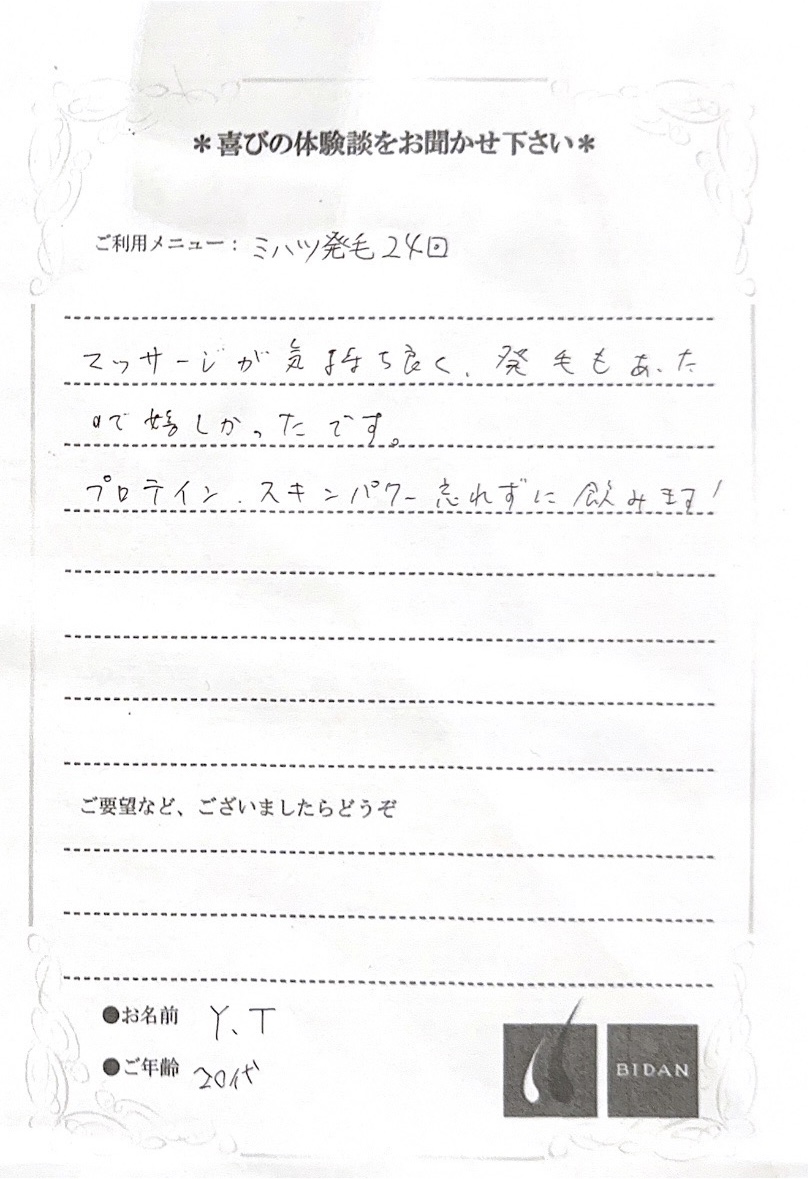 ＊喜びの体験談をお聞かせ下さい＊
ご利用メニュー：ミハツ発毛24回
マッサージが気持ち良く、発毛もあった
ので嬉しかったです。
プロテイン、スキンパワー忘れずに飲みます!
ご要望など、ございましたらどうぞ
●お名前 Y.T
●ご年齢 20代
BIDAN